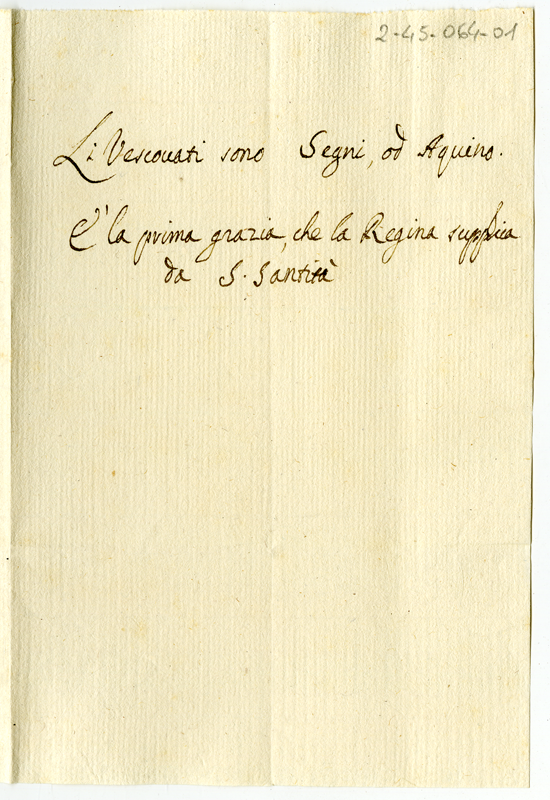 2-45-064-01
Li Vescovati sono Segni, od Aquino.
E' la prima grazia, che la Regina supplica
da S. Santità